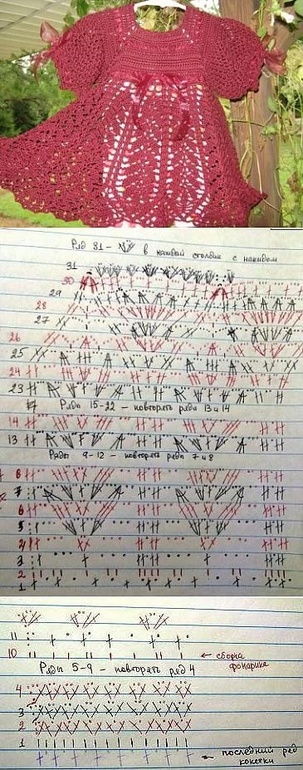 Ряд 31 - в каждый столбик с накидом
31
30
29
28
27
26
25
24
23
Ряды 15-22 - повторять ряды 13 и 14
14
13
Ряды 9-12 - повторять ряды 7 и 8
8
7
6
5
4
3
2
1
11
10 ← сборка фонарика
Ряды 5-9 - повторять ряд 4
4
3
2
1
← последний ряд кокетки